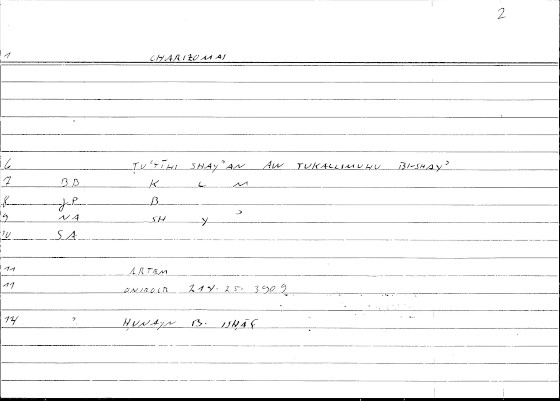 2
1 CHARIZOMAI
6 TU'TĪHI SHAY'AN AW TUKALLIMUHU BI-SHAY'
7 BD K L M
8 JP B
9 NA SH Y '
10 SA
11 ARTEM
11 ONIROCR 214.25. 3902
14 ? ḤUNAYN B. ISḤĀQ